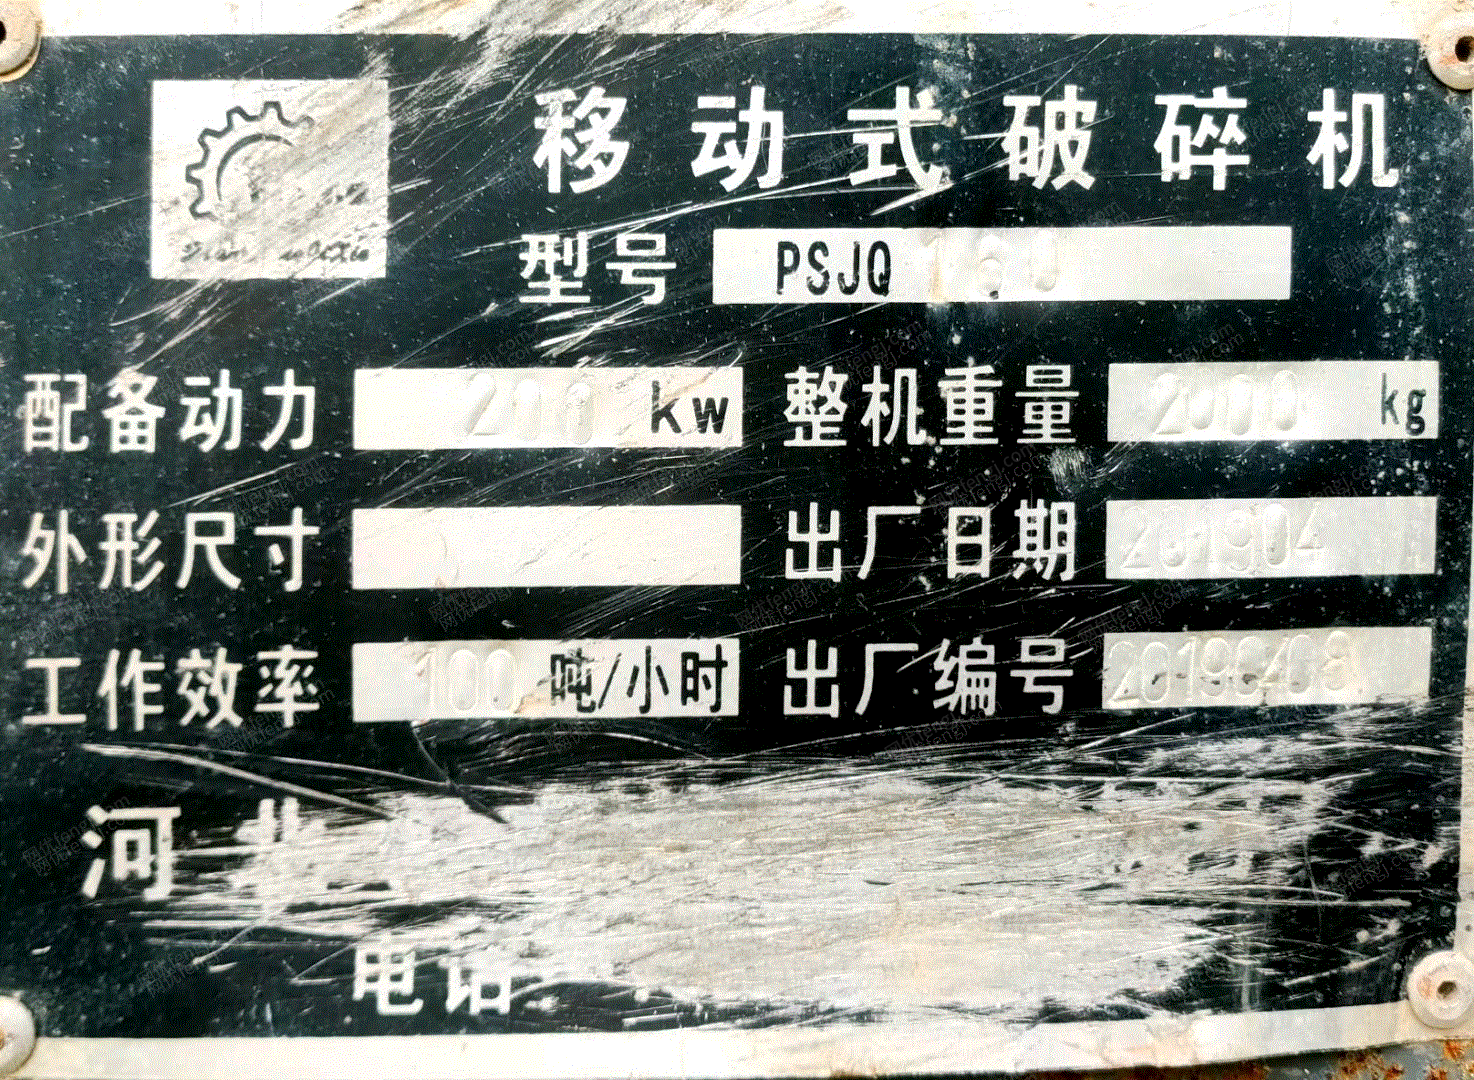 移动式破碎机
型号 PSJQ
配备动力 200 Kw 整机重量 2000 kg
外形尺寸 出厂日期 201904
工作效率 100 吨/小时 出厂编号 20190408
河北
电话